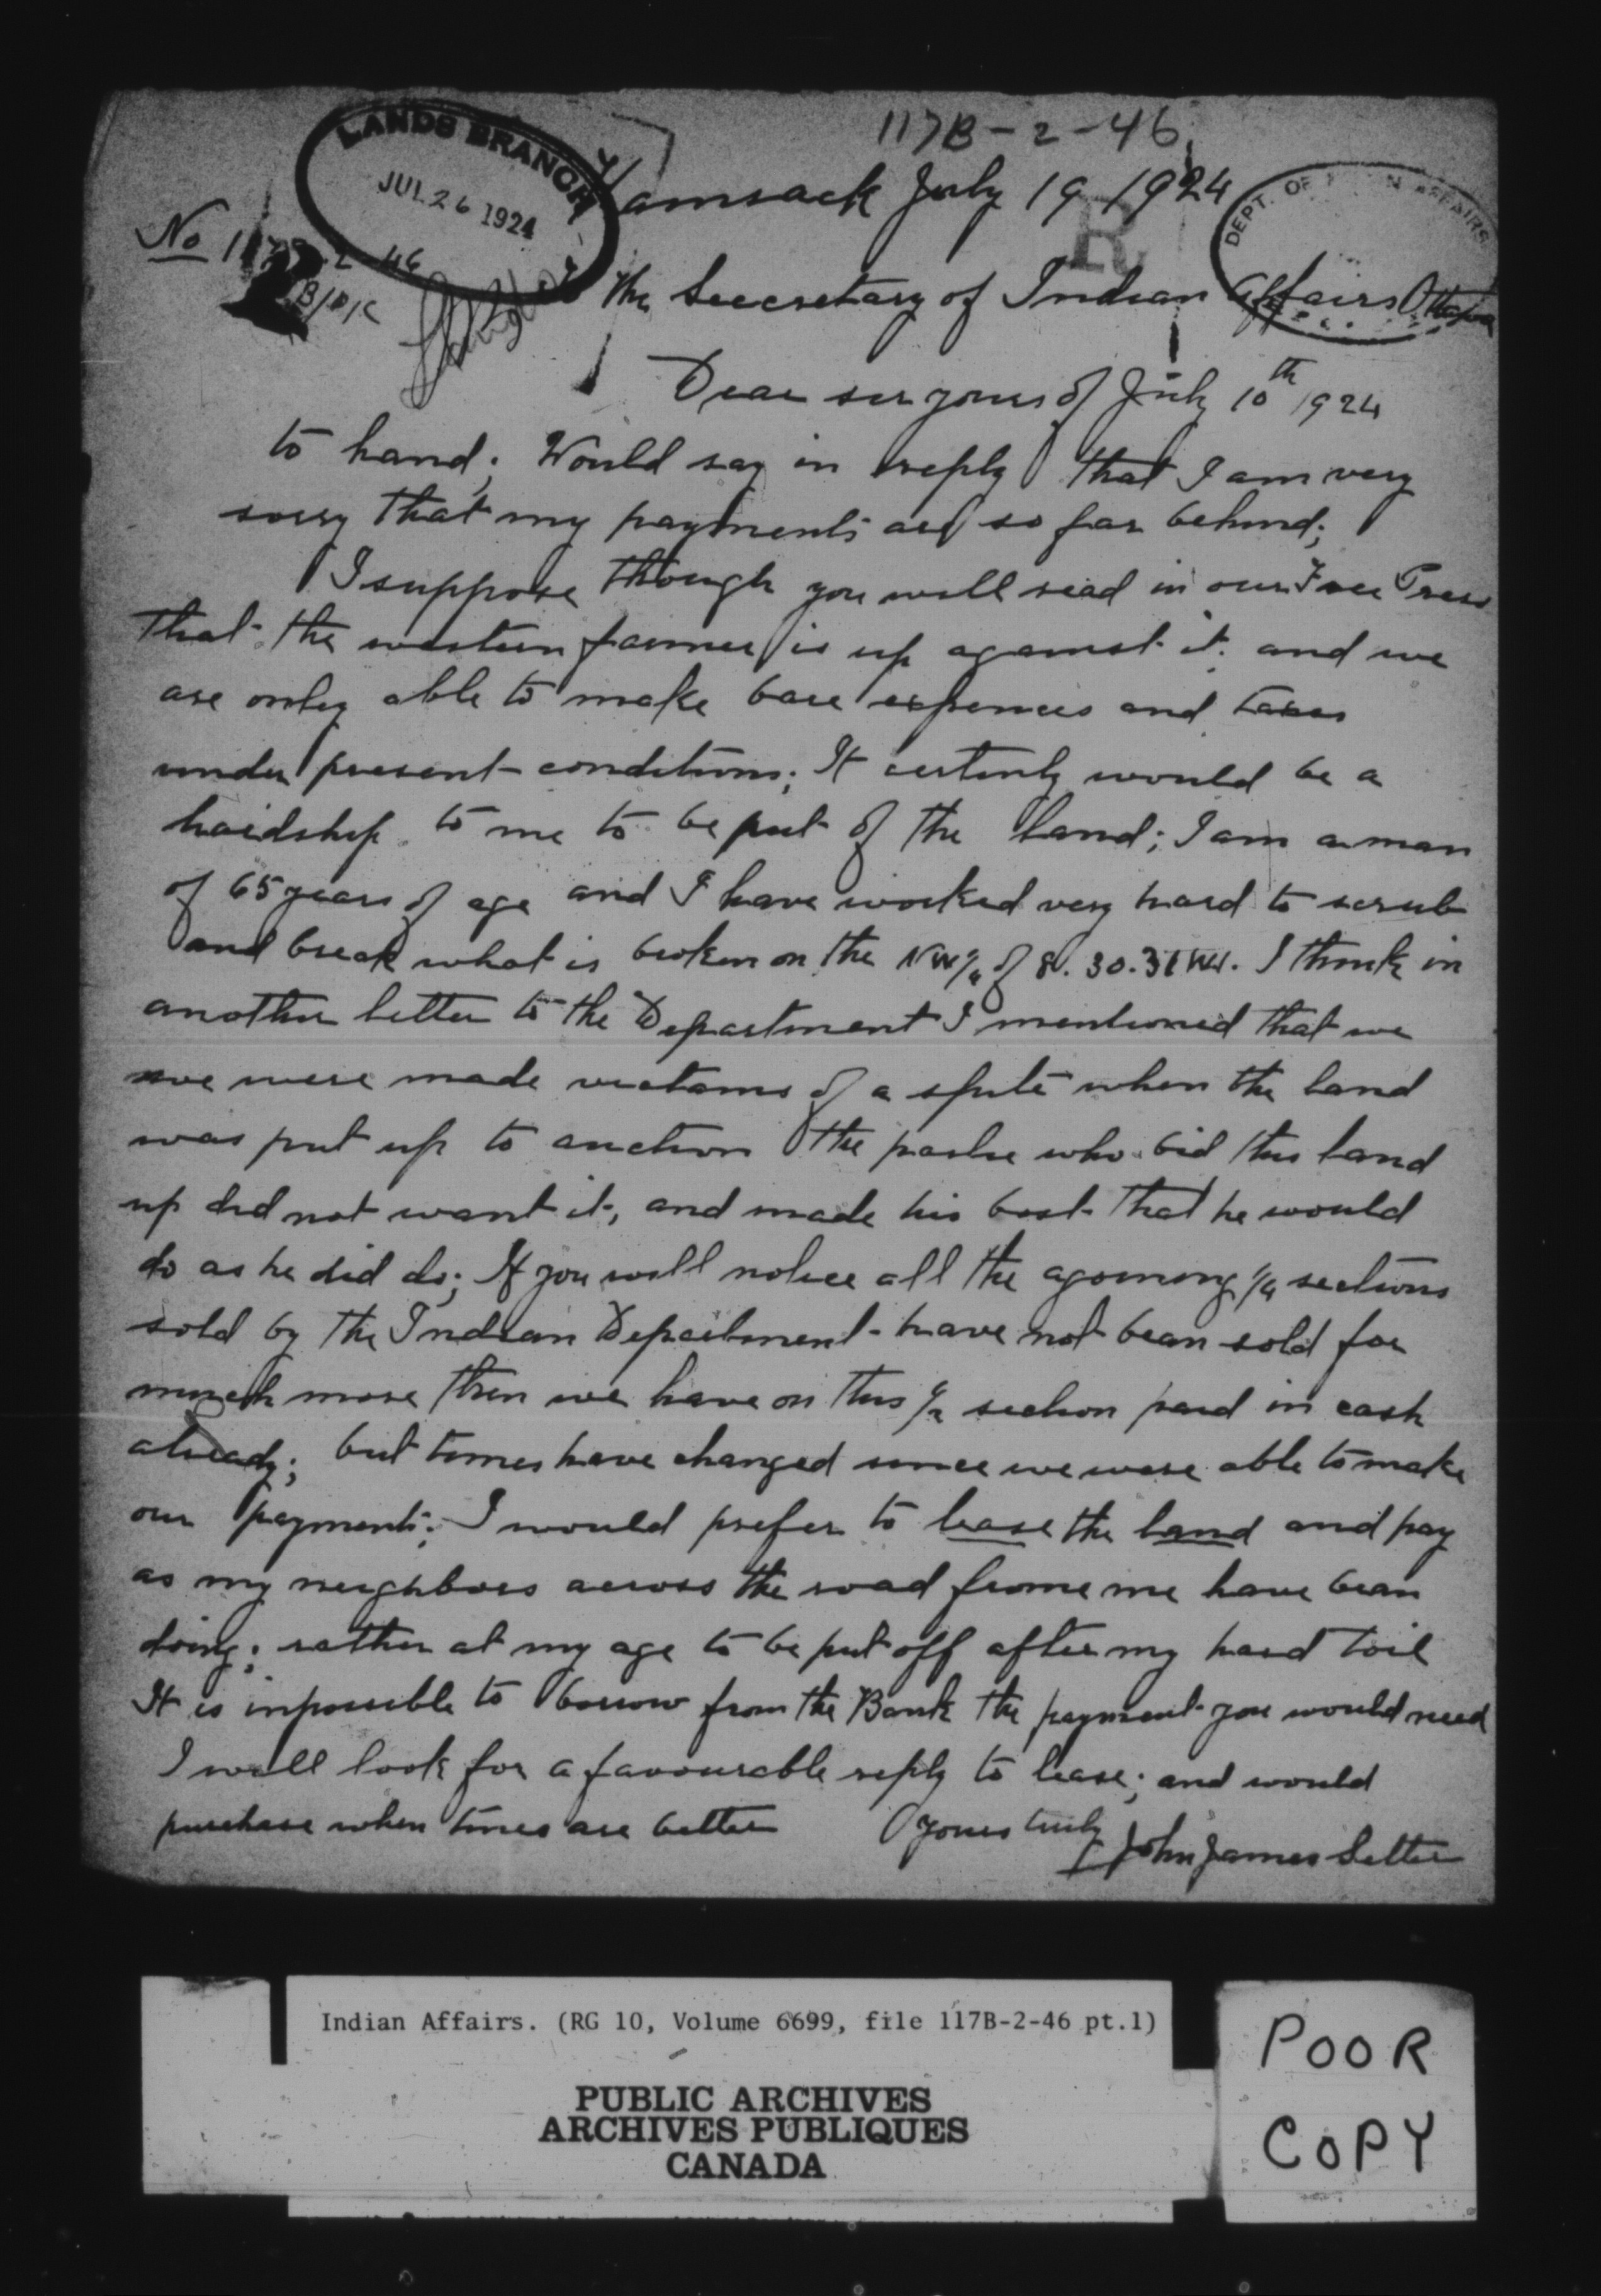 117B-2-46
LANDS BRANCH
JUL 26 1924
Kamsack July 19 1924
R
DEPT. OF INDIAN AFFAIRS
No 117B-2-46
B/D/C
To the Seecretary of Indian Affairs Ottawa
Dear sir yours of July 10th 1924
to hand; Would say in reply that I am very
sorry that my payments are so far behind;
I suppose though you will read in our Free Press
that the western farmer is up against it. and we
are onley able to make bare expences and taxes
under present conditions; It certinly would be a
hardship to me to be put of the land; I am a man
of 65 years of age and I have worked very hard to scrub
and break what is broken on the NW 1/4 of 8. 30. 31 W1. I think in
another letter to the Department I mentioned that we
we were made victams of a spite when the land
was put up to auction the partie who bid this land
up did not want it, and made his bost that he would
do as he did do; If you will notice all the agoining 1/4 sections
sold by the Indian Department have not bean sold for
much more then we have on this 1/2 section paid in cash
already; but times have changed since we were able to make
our payments; I would prefer to lease the land and pay
as my neighbors across the road frome me have bean
doing; rather at my age to be put off after my hard toil
It is inpossible to borrow from the Bank the payment you would need
I will look for a favourable reply to lease; and would
purchase when times are better yours truly
John James Setter
Indian Affairs. (RG 10, Volume 6699, file 117B-2-46 pt.1)
PUBLIC ARCHIVES
ARCHIVES PUBLIQUES
CANADA
POOR
COPY